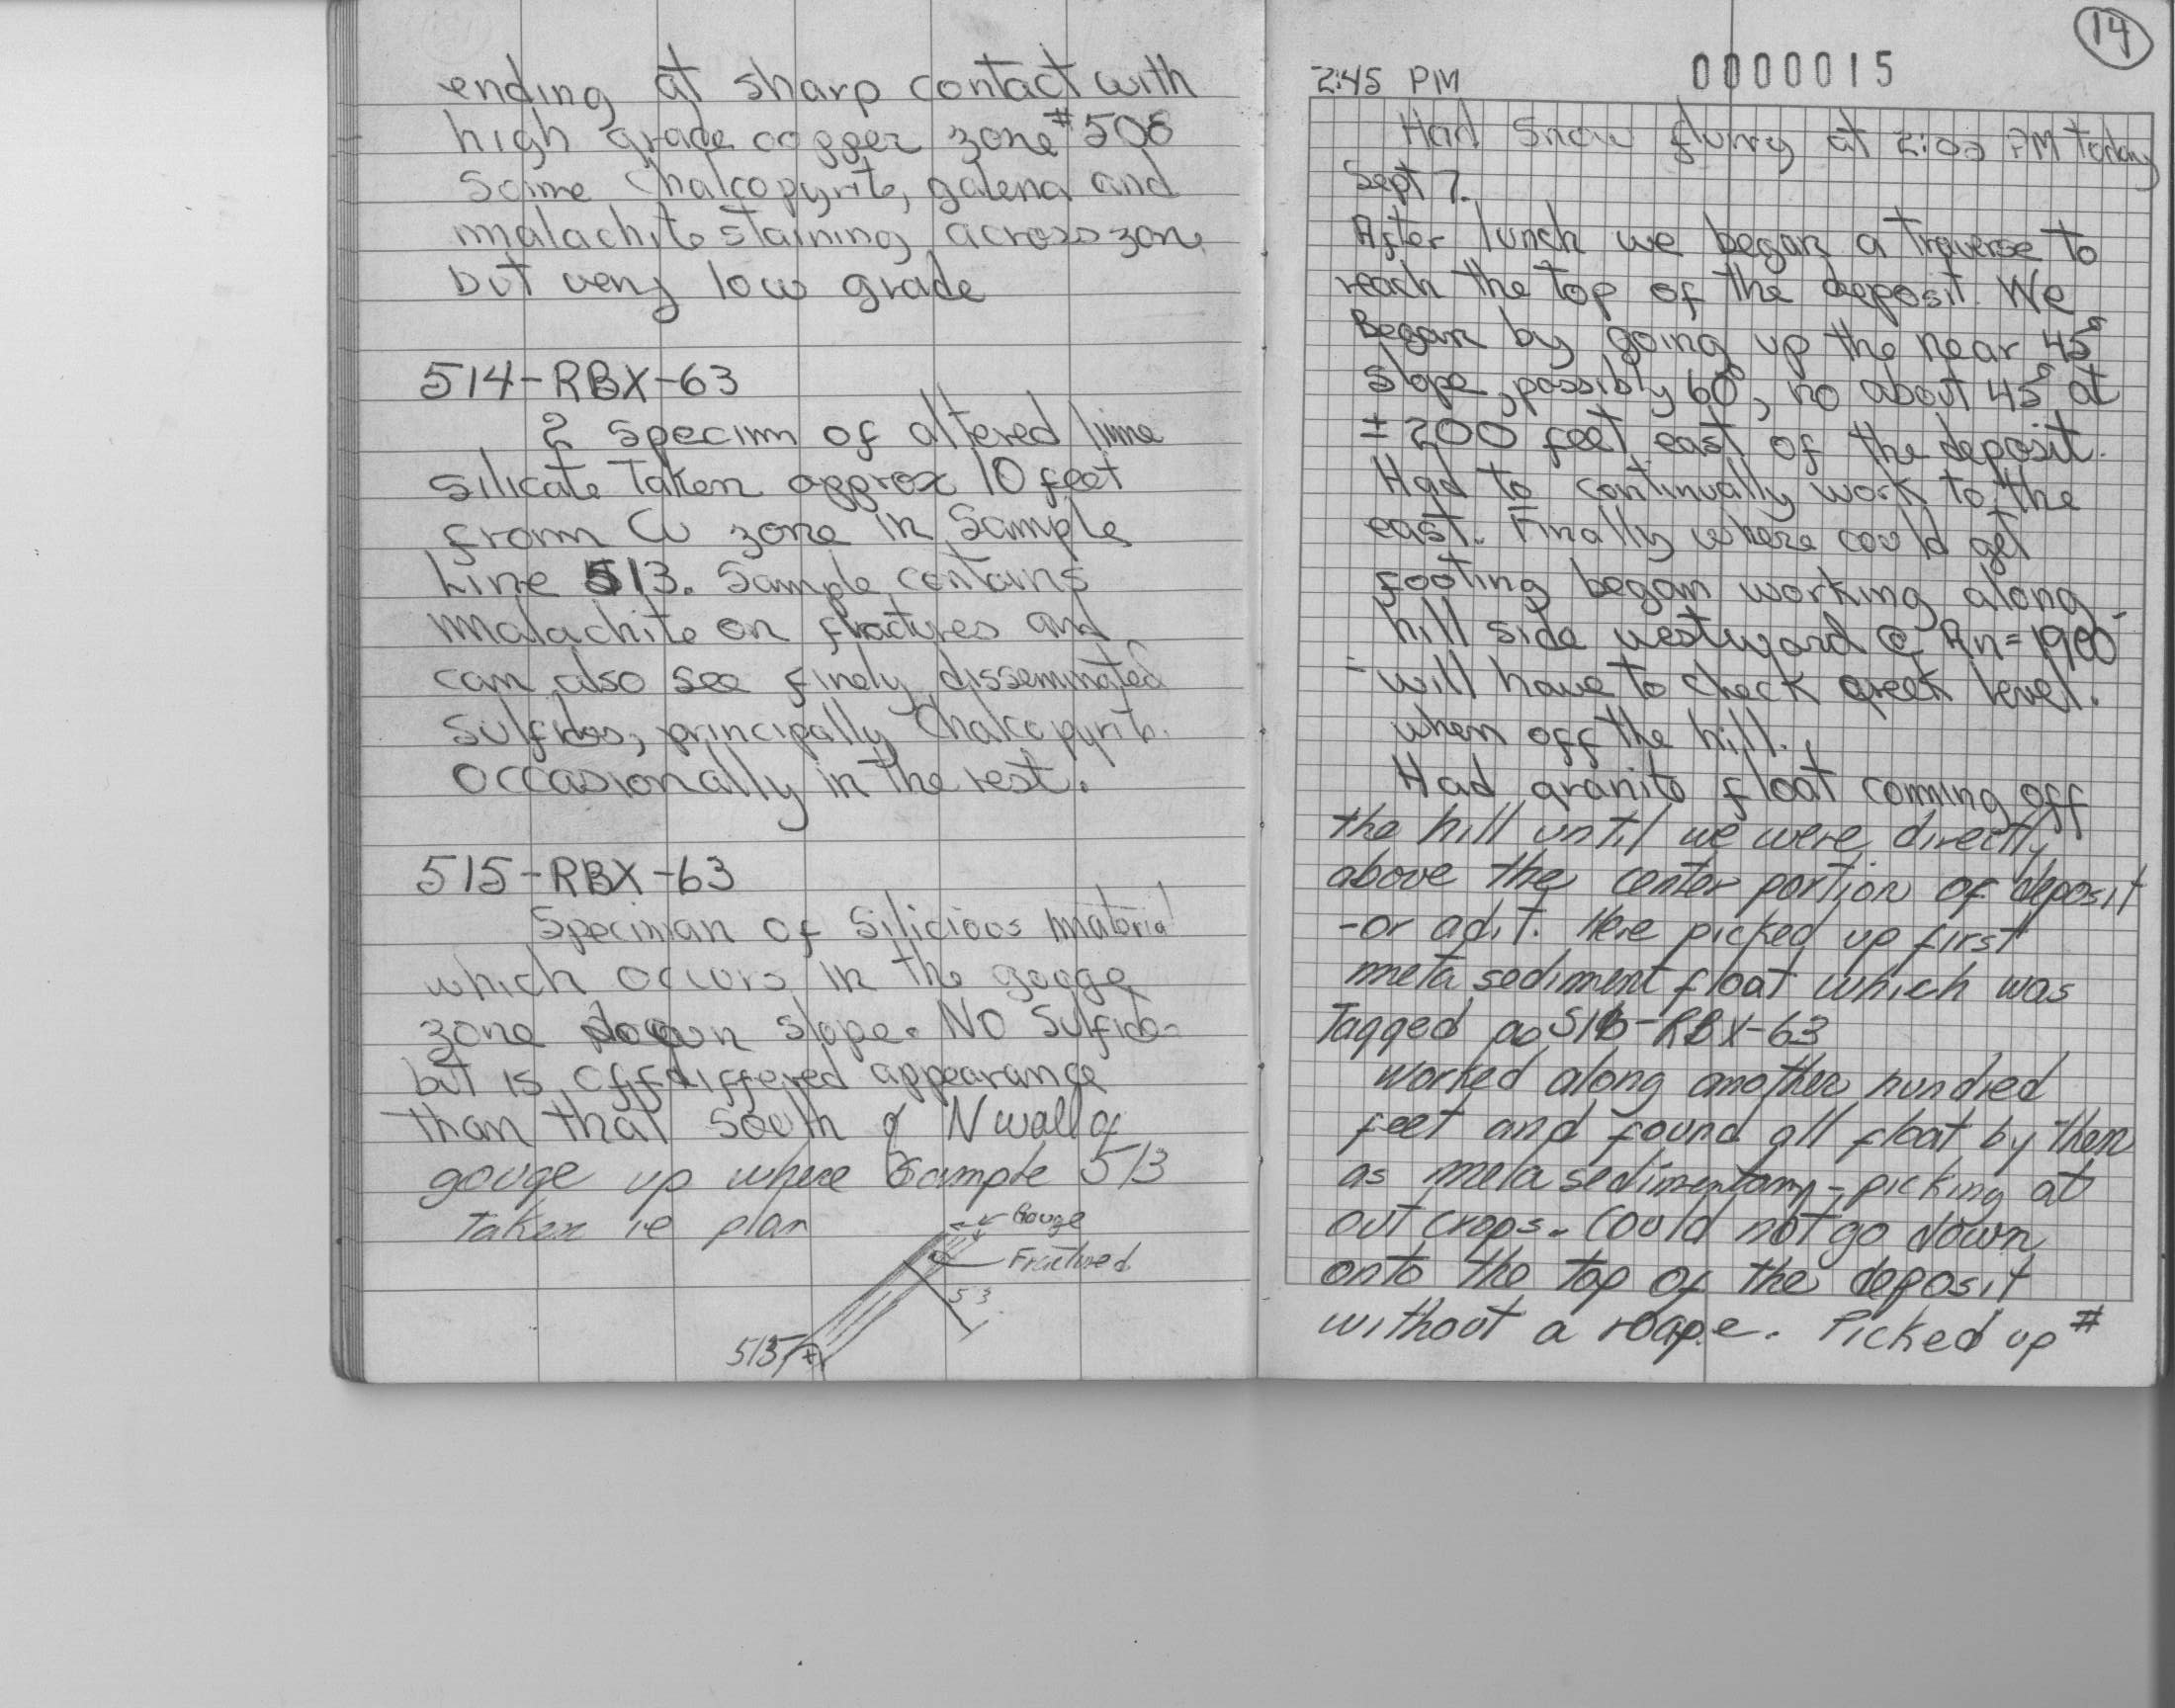 ending at sharp contact with
high grade copper zone #508
Some Chalcopyrite, galena and
malachite staining across zone
but very low grade
514-RBX-63
2 Specimn of altered lime
silicate Taken approx 10 feet
from Cu zone in Sample
Line 513. Sample contains
malachite on fractures and
can also see finely disseminated
sulfides, principally Chalcopyrite.
occasionally in the rest.
515-RBX-63
Speciman of Silicious material
which occurs in the gouge
zone down slope. No Sulfide
but is of differed appearance
than that South of N wall of
gouge up where Sample 513
taken ie plan
Gouge
Fractured
513
515
14
0000015
2:45 PM
Had Snow flurry at 2:05 PM Today
Sept 7.
After lunch we began a Traverse to
reach the top of the deposit. We
Began by going up the near 45°
slope, possibly 60°, no about 45° at
± 200 feet east of the deposit.
Had to continually work to the
east. Finally where could get
footing began working along
hill side westward @ An = 1900'
- will have to check creek level.
when off the hill.
Had granite float coming off
the hill until we were directly
above the center portion of deposit
-or adit. Here picked up first
meta sediment float which was
Tagged as 516-RBX-63
worked along another hundred
feet and found all float by then
as meta sedimentary - picking at
out crops. Could not go down
onto the top of the deposit
without a roape. Picked up #